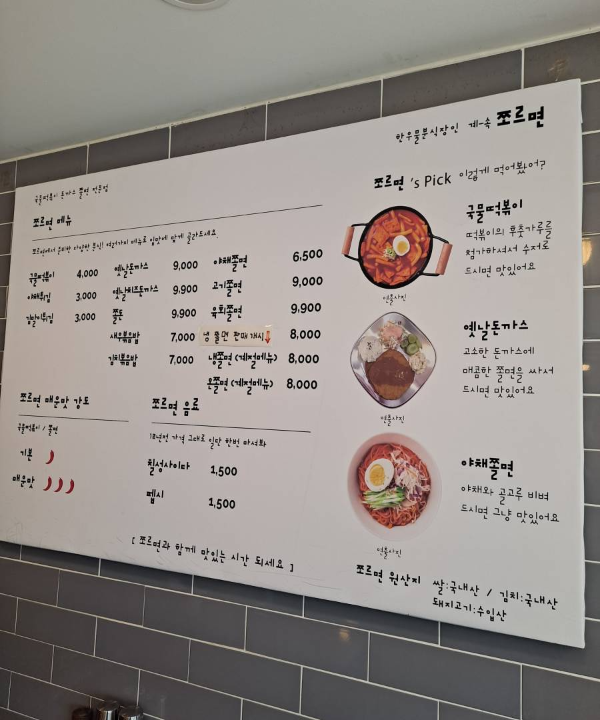 한우물분식장인 계속 쪼르면
국물떡볶이 돈까스 쫄면 전문점
쪼르면 메뉴
쪼르면에서 준비한 다양한 분식! 여러가지 메뉴로 입맛에 맞게 골라드세요
국물떡볶이 4,000
야채튀김 3,000
김말이튀김 3,000
옛날돈까스 9,000
옛날치즈돈까스 9,900
쫄돈 9,900
새우볶음밥 7,000
김치볶음밥 7,000
야채쫄면 6,500
고기쫄면 9,000
육회쫄면 9,900
냉 쫄면 판매 개시 8,000
냉쫄면 (계절메뉴) 8,000
온쫄면 (계절메뉴) 8,000
쪼르면 매운맛 강도
국물떡볶이 / 쫄면
기본
매운맛
쪼르면 음료
10년전 가격 그대로 일단 한번 마셔봐
칠성사이다 1,500
펩시 1,500
[ 쪼르면과 함께 맛있는 시간 되세요 ]
쪼르면 's Pick 이렇게 먹어봤어?
국물떡볶이
떡볶이의 후춧가루를
첨가하셔서 수저로
드시면 맛있어요
연출사진
옛날돈까스
고소한 돈까스에
매콤한 쫄면을 싸서
드시면 맛있어요
연출사진
야채쫄면
야채와 골고루 비벼
드시면 그냥 맛있어요
연출사진
쪼르면 원산지 쌀:국내산 / 김치:국내산
돼지고기:수입산